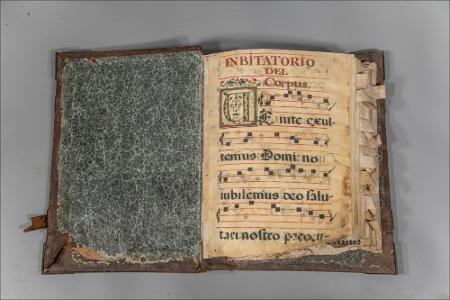 INBITATORIO
DEL
Corpus.
VEnite exul-
temus Domino
iubilemus deo salu-
tari nostro